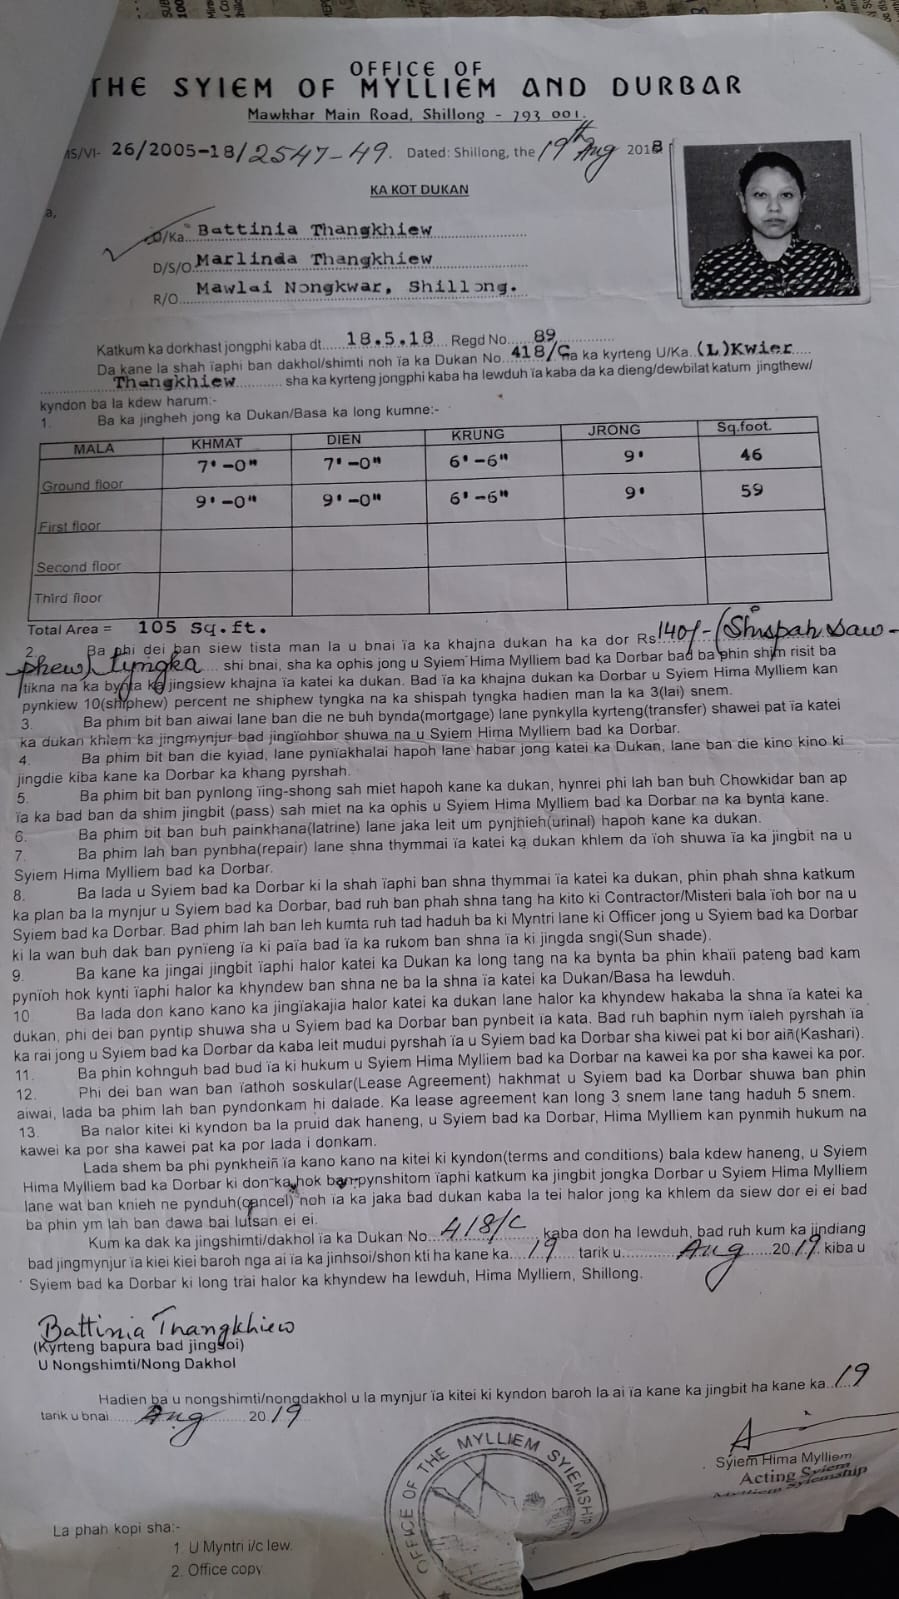 OFFICE OF
THE SYIEM OF MYLLIEM AND DURBAR
Mawkhar Main Road, Shillong - 793 001.
MS/VI- 26/2005-18/2547-49. Dated: Shillong, the 19th Aug 2018
KA KOT DUKAN
D/Ka Battinia Thangkhiew
D/S/O Marlinda Thangkhiew
R/O Mawlai Nongkwar, Shillong.
Katkum ka dorkhast jongphi kaba dt 18.5.18 Regd No 89
Da kane la shah ïaphi ban dakhol/shimti noh ïa ka Dukan No. 418/C na ka kyrteng U/Ka (L)Kwier
Thangkhiew sha ka kyrteng jongphi kaba ha lewduh ïa kaba da ka dieng/dewbilat katum jingthew/
kyndon ba la kdew harum:-
1. Ba ka jingheh jong ka Dukan/Basa ka long kumne:-
MALA KHMAT DIEN KRUNG JRONG Sq.foot.
Ground floor 7'-0" 7'-0" 6'-6" 9' 46
First floor 9'-0" 9'-0" 6'-6" 9' 59
Second floor
Third floor
Total Area = 105 sq.ft.
2. Ba phi dei ban siew tista man la u bnai ïa ka khajna dukan ha ka dor Rs. 140/- (Shispah Saw-
phew) tyngka shi bnai, sha ka ophis jong u Syiem Hima Mylliem bad ka Dorbar bad ba phin shim risit ba
tikna na ka bynta ka jingsiew khajna ïa katei ka dukan. Bad ïa ka khajna dukan ka Dorbar u Syiem Hima Mylliem kan
pynkiew 10(shiphew) percent ne shiphew tyngka na ka shispah tyngka hadien man la ka 3(lai) snem.
3. Ba phim bit ban aiwai lane ban die ne buh bynda(mortgage) lane pynkylla kyrteng(transfer) shawei pat ïa katei
ka dukan khlem ka jingmynjur bad jingïohbor shuwa na u Syiem Hima Mylliem bad ka Dorbar.
4. Ba phim bit ban die kyiad, lane pynïakhalai hapoh lane habar jong katei ka Dukan, lane ban die kino kino ki
jingdie kiba kane ka Dorbar ka khang pyrshah.
5. Ba phim bit ban pynlong ïing-shong sah miet hapoh kane ka dukan, hynrei phi lah ban buh Chowkidar ban ap
ïa ka bad ban da shim jingbit (pass) sah miet na ka ophis u Syiem Hima Mylliem bad ka Dorbar na ka bynta kane.
6. Ba phim bit ban buh painkhana(latrine) lane jaka leit um pynjhieh(urinal) hapoh kane ka dukan.
7. Ba phim lah ban pynbha(repair) lane shna thymmai ïa katei ka dukan khlem da ïoh shuwa ïa ka jingbit na u
Syiem Hima Mylliem bad ka Dorbar.
8. Ba lada u Syiem bad ka Dorbar ki la shah ïaphi ban shna thymmai ïa katei ka dukan, phin phah shna katkum
ka plan ba la mynjur u Syiem bad ka Dorbar, bad ruh ban phah shna tang ha kito ki Contractor/Misteri bala ïoh bor na u
Syiem bad ka Dorbar. Bad phim lah ban leh kumta ruh tad haduh ba ki Myntri lane ki Officer jong u Syiem bad ka Dorbar
ki la wan buh dak ban pynïeng ïa ki païa bad ïa ka rukom ban shna ïa ki jingda sngi(Sun shade).
9. Ba kane ka jingai jingbit ïaphi halor katei ka Dukan ka long tang na ka bynta ba phin khaïi pateng bad kam
pynïoh hok kynti ïaphi halor ka khyndew ban shna ne ba la shna ïa katei ka Dukan/Basa ha lewduh.
10 Ba lada don kano kano ka jingïakajia halor katei ka dukan lane halor ka khyndew hakaba la shna ïa katei ka
dukan, phi dei ban pyntip shuwa sha u Syiem bad ka Dorbar ban pynbeit ïa kata. Bad ruh baphin nym ïaleh pyrshah ïa
ka rai jong u Syiem bad ka Dorbar da kaba leit mudui pyrshah ïa u Syiem bad ka Dorbar sha kiwei pat ki bor aiñ(Kashari).
11. Ba phin kohnguh bad bud ïa ki hukum u Syiem Hima Mylliem bad ka Dorbar na kawei ka por sha kawei ka por.
12. Phi dei ban wan ban ïathoh soskular(Lease Agreement) hakhmat u Syiem bad ka Dorbar shuwa ban phin
aiwai, lada ba phim lah ban pyndonkam hi dalade. Ka lease agreement kan long 3 snem lane tang haduh 5 snem.
13. Ba nalor kitei ki kyndon ba la pruid dak haneng, u Syiem bad ka Dorbar, Hima Mylliem kan pynmih hukum na
kawei ka por sha kawei pat ka por lada i donkam.
Lada shem ba phi pynkheiñ ïa kano kano na kitei ki kyndon(terms and conditions) bala kdew haneng, u Syiem
Hima Mylliem bad ka Dorbar ki don ka hok ban pynshitom ïaphi katkum ka jingbit jongka Dorbar u Syiem Hima Mylliem
lane wat ban knieh ne pynduh(cancel) noh ïa ka jaka bad dukan kaba la tei halor jong ka khlem da siew dor ei ei bad
ba phin ym lah ban dawa bai lutsan ei ei.
Kum ka dak ka jingshimti/dakhol ïa ka Dukan No. 418/C kaba don ha lewduh, bad ruh kum ka jindiang
bad jingmynjur ïa kiei kiei baroh nga ai ïa ka jinhsoi/shon kti ha kane ka 19 tarik u Aug 2019 kiba u
Syiem bad ka Dorbar ki long trai halor ka khyndew ha lewduh, Hima Mylliem, Shillong.
Battinia Thangkhiew
(Kyrteng bapura bad jingsoi)
U Nongshimti/Nong Dakhol
Hadien ba u nongshimti/nongdakhol u la mynjur ïa kitei ki kyndon baroh la ai ïa kane ka jingbit ha kane ka 19
tarik u bnai Aug 2019
Syiem Hima Mylliem
Acting Syiem
Mylliem Syiemship
OFFICE OF THE MYLLIEM SYIEMSHIP
La phah kopi sha:-
1. U Myntri i/c lew.
2. Office copy